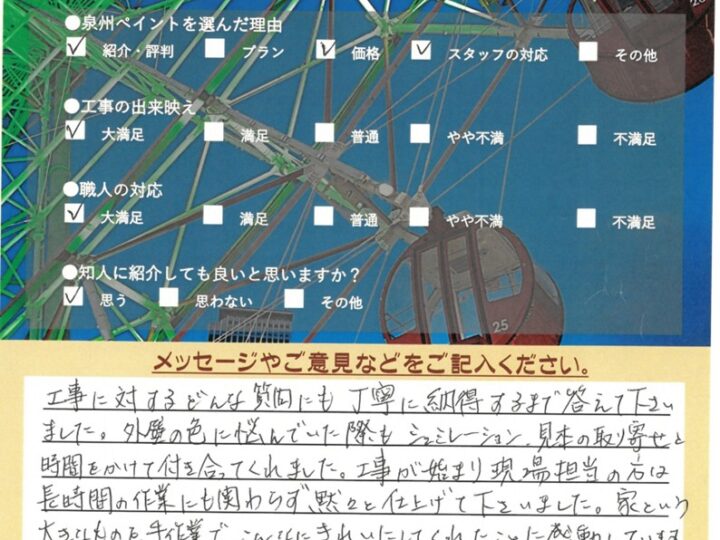 ●泉州ペイントを選んだ理由
紹介・評判 プラン 価格 スタッフの対応 その他
●工事の出来映え
大満足 満足 普通 やや不満 不満足
●職人の対応
大満足 満足 普通 やや不満 不満足
●知人に紹介しても良いと思いますか？
思う 思わない その他
25
メッセージやご意見などをご記入ください。
工事に対するどんな質問にも丁寧に納得するまで答えて下さい
ました。外壁の色に悩んでいた際もシュミレーション、見本の取り寄せと
時間をかけて付き合ってくれました。工事が始まり現場担当の方は
長時間の作業にも関わらず黙々と仕上げて下さいました。家という
大きなものを手作業で、こんなにきれいにしてくれたことに感動しています